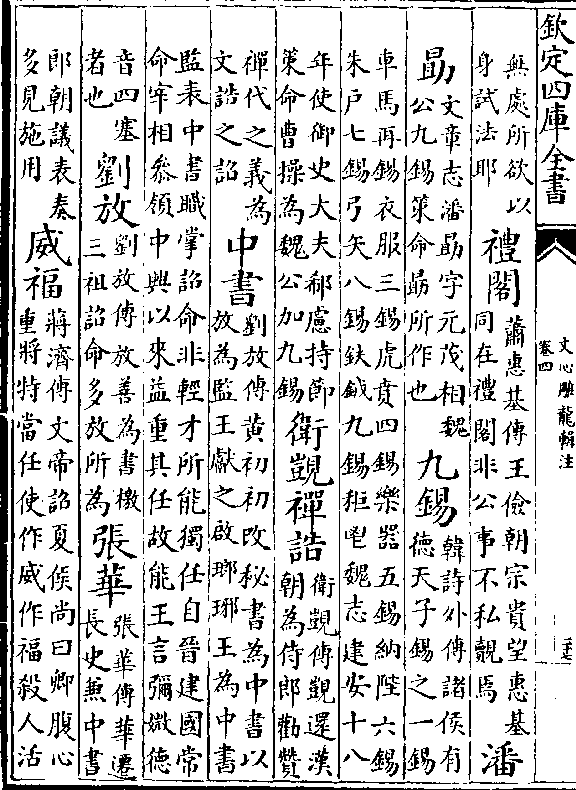 欽定四庫全書
文心雕龍輯注
卷四
無處所欲以
身試法耶
禮閣
蕭惠基傳王儉朝宗貴望惠基
同在禮閣非公事不私覿焉
潘
勗
文章志潘勗字元茂相魏
公九錫策命勗所作也
九錫
韓詩外傳諸侯有
德天子錫之一錫
車馬再錫衣服三錫虎賁四錫樂器五錫納陛六錫
朱戶七錫弓矢八錫鈇鉞九錫秬鬯魏志建安十八
年使御史大夫郗慮持節
策命曹操為魏公加九錫
衛覬禪誥
衛覬傳覬還漢
朝為侍郎勸贊
禪代之義為
文誥之詔
中書
劉放傳黃初初改秘書為中書以
放為監王獻之啟瑯琊王為中書
監表中書職掌詔命非輕才所能獨任自晉建國常
命宰相參領中興以來益重其任故能王言彌媺德
音四塞
者也
劉放
劉放傳放善為書檄
三祖詔命多放所為
張華
張華傳華遷
長史兼中書
郎朝議表奏
多見施用
威福
蔣濟傳文帝詔夏侯尚曰卿腹心
重將特當任使作威作福殺人活